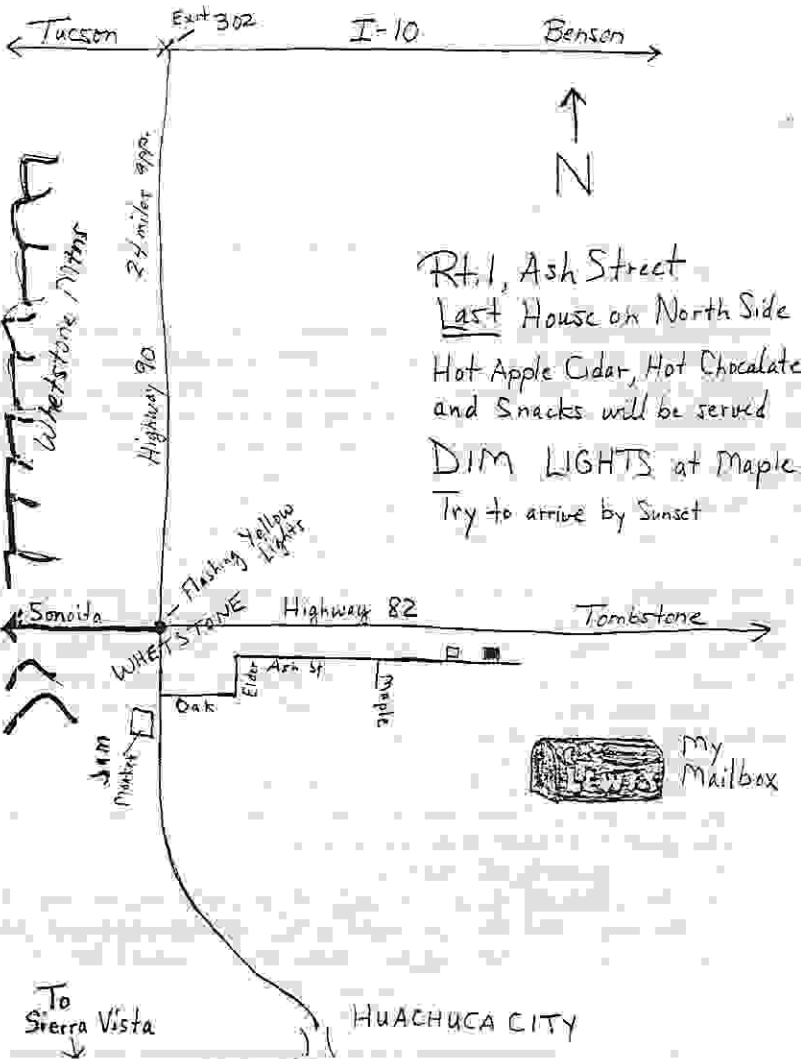 Tucson
Exit 302
I-10
Benson
N
24 miles app.
Highway 90
Whetstone Mtns
Rt.1, Ash Street
Last House on North Side
Hot Apple Cidar, Hot Chocalate
and Snacks will be served
DIM LIGHTS at Maple
Try to arrive by Sunset
Flashing Yellow
Lights
Sonoita
WHETSTONE
Highway 82
Tombstone
Elder
Ash St
Maple
Oak
Market
My
Mailbox
To
Sierra Vista
HUACHUCA CITY